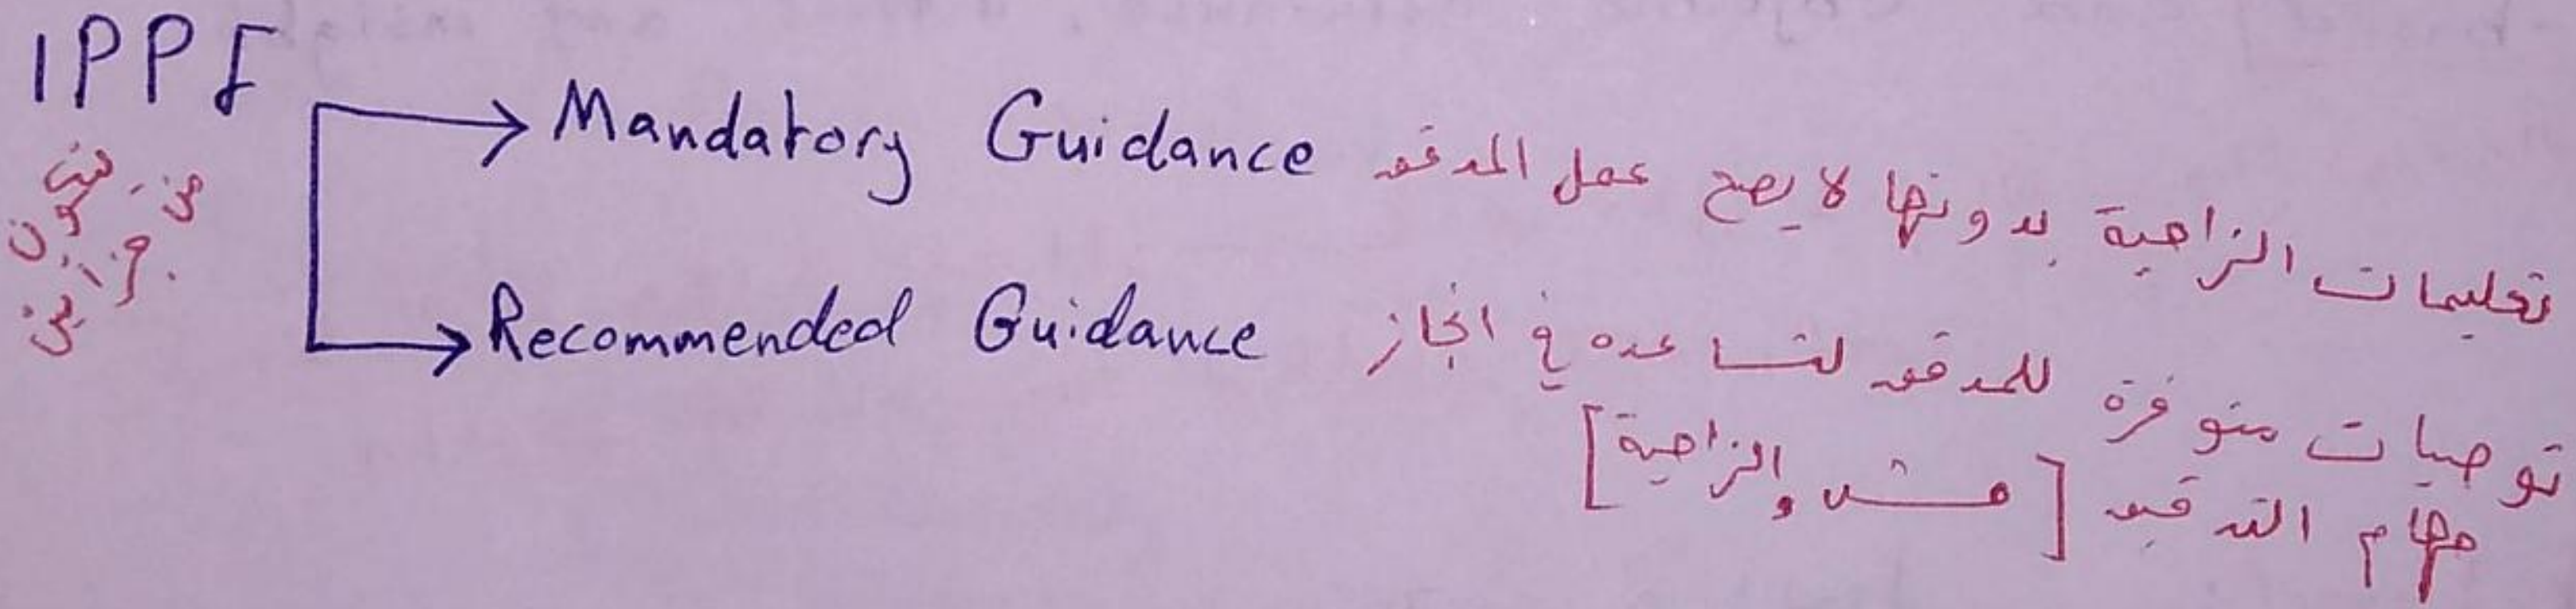 IPPF
يتكون من
جزأين
Mandatory Guidance
تعليمات الزامية بدونها لا يصح عمل المدقق
Recommended Guidance
توصيات متوفرة للمدقق لتساعده في انجاز
مهام التدقيق [مش الزامية]